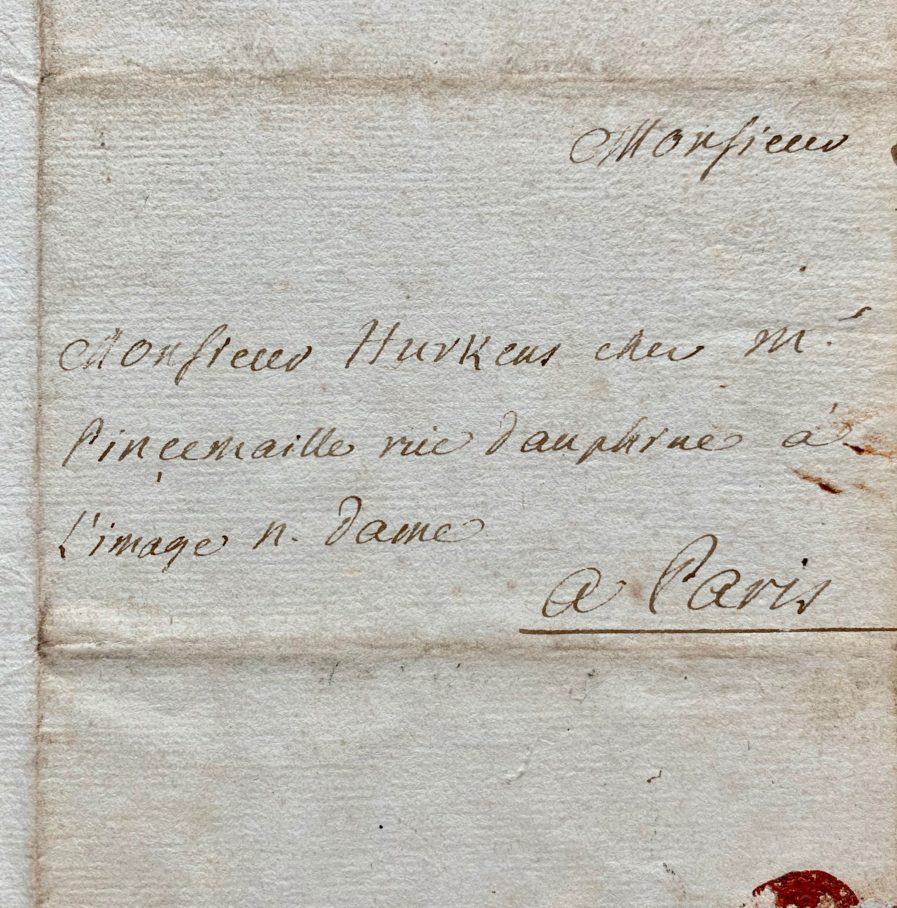 Monsieur
Monsieur Hurkens chez Mr.
Pinçemaille rue dauphine a
L'image n. dame
a Paris